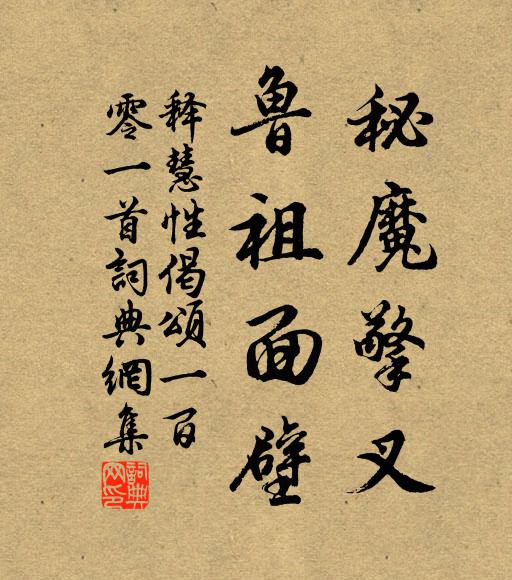 秘魔擎叉
鲁祖面壁
释慧性偈颂一百
零一首詞典網集
詞典网印